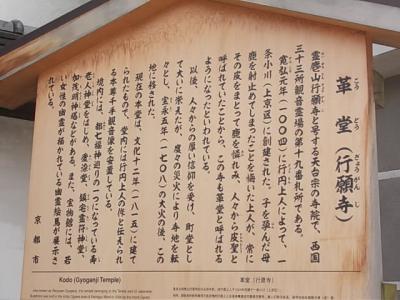 革堂（行願寺）
こうどう ぎょうがんじ
霊麀山行願寺と号する天台宗の寺院で、西国
三十三所観音霊場の第十九番札所である。
寛弘元年（一〇〇四）に行円上人によって、一
条小川（上京区）に創建された。子を孕んだ母
鹿を射止めてしまったことを悔いた上人が、常に
その皮をまとって鹿を憐れみ、人々から皮聖と
呼ばれていたことから、この寺も革堂と呼ばれる
ようになったといわれている。
以後、人々からの厚い信仰を受け、町堂とし
て大いに栄えたが、度々の災火により寺地を転
々とし、宝永五年（一七〇八）の大火の後、この
地に移された。
現在の本堂は、文化十二年（一八一五）に建て
られたもので、堂内には行円上人の作と伝えられ
る本尊千手観音像を安置している。
境内には、都七福神巡りの一つになっている寿
老人神堂をはじめ、愛染堂、鎮宅霊符神堂、
加茂明神塔などがある。また、宝物館には、若
い女性の幽霊が描かれている幽霊絵馬が展示さ
れている。
京都市
Kodo (Gyoganji Temple)
革堂（行願寺）